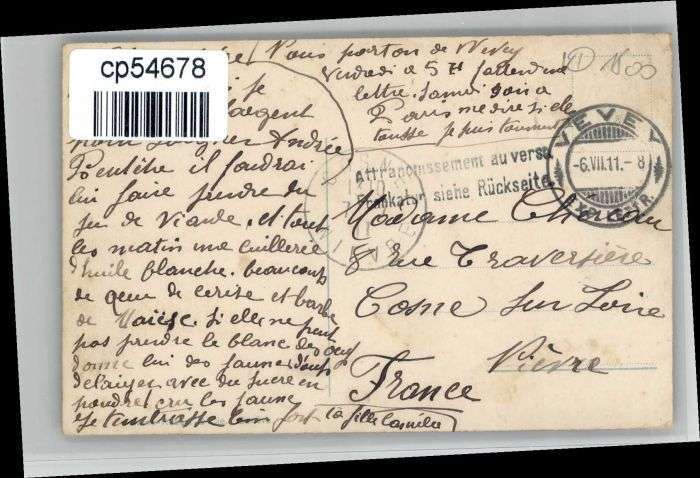 cp54678
Nous parton de Vevey
Vendredi a 5 H
lettre. Samedi
Paris me dire si elle
tousse je suis tourment
je
l'argent
pour soigner Andrée
Peutêtre il faudrai
lui faire prendre du
jus de Viande. et tout
les matin une cuillerée
d'huile blanche. beaucoup
de queu de cerise et barbe
de Maïse. si elle ne peut
pas prendre le blanc des oeuf
donne lui des jaunes d'oeufs
delaiyer avec du sucre en
poudre cru les jaune
je t'embrasse bien fort ta fille Camélia
Affranchissement au verso
Frankatur siehe Rückseite.
VEVEY
-6.VII.11.-8
Madame
8 rue Traversière
Cosne sur Loire
Nièvre
France